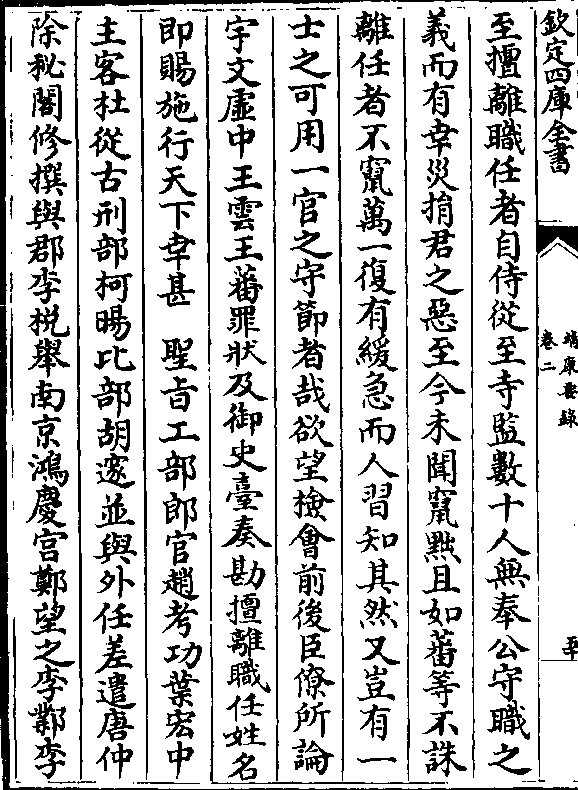 欽定四庫全書
靖康要錄
卷二
至擅離職任者自侍從至寺監數十人無奉公守職之
義而有幸災捐君之惡至今未聞竄黜且如蕃等不誅
離任者不竄萬一復有緩急而人習知其然又豈有一
士之可用一官之守節者哉欲望檢會前後臣僚所論
宇文虛中王雲王蕃罪狀及御史臺奏勘擅離職任姓名
即賜施行天下幸甚　聖旨工部郎官趙考功葉宏中
主客杜從古刑部柯暘比部胡邃並與外任差遣唐仲
除秘閣修撰與郡李棁舉南京鴻慶宮鄭望之李鄴李